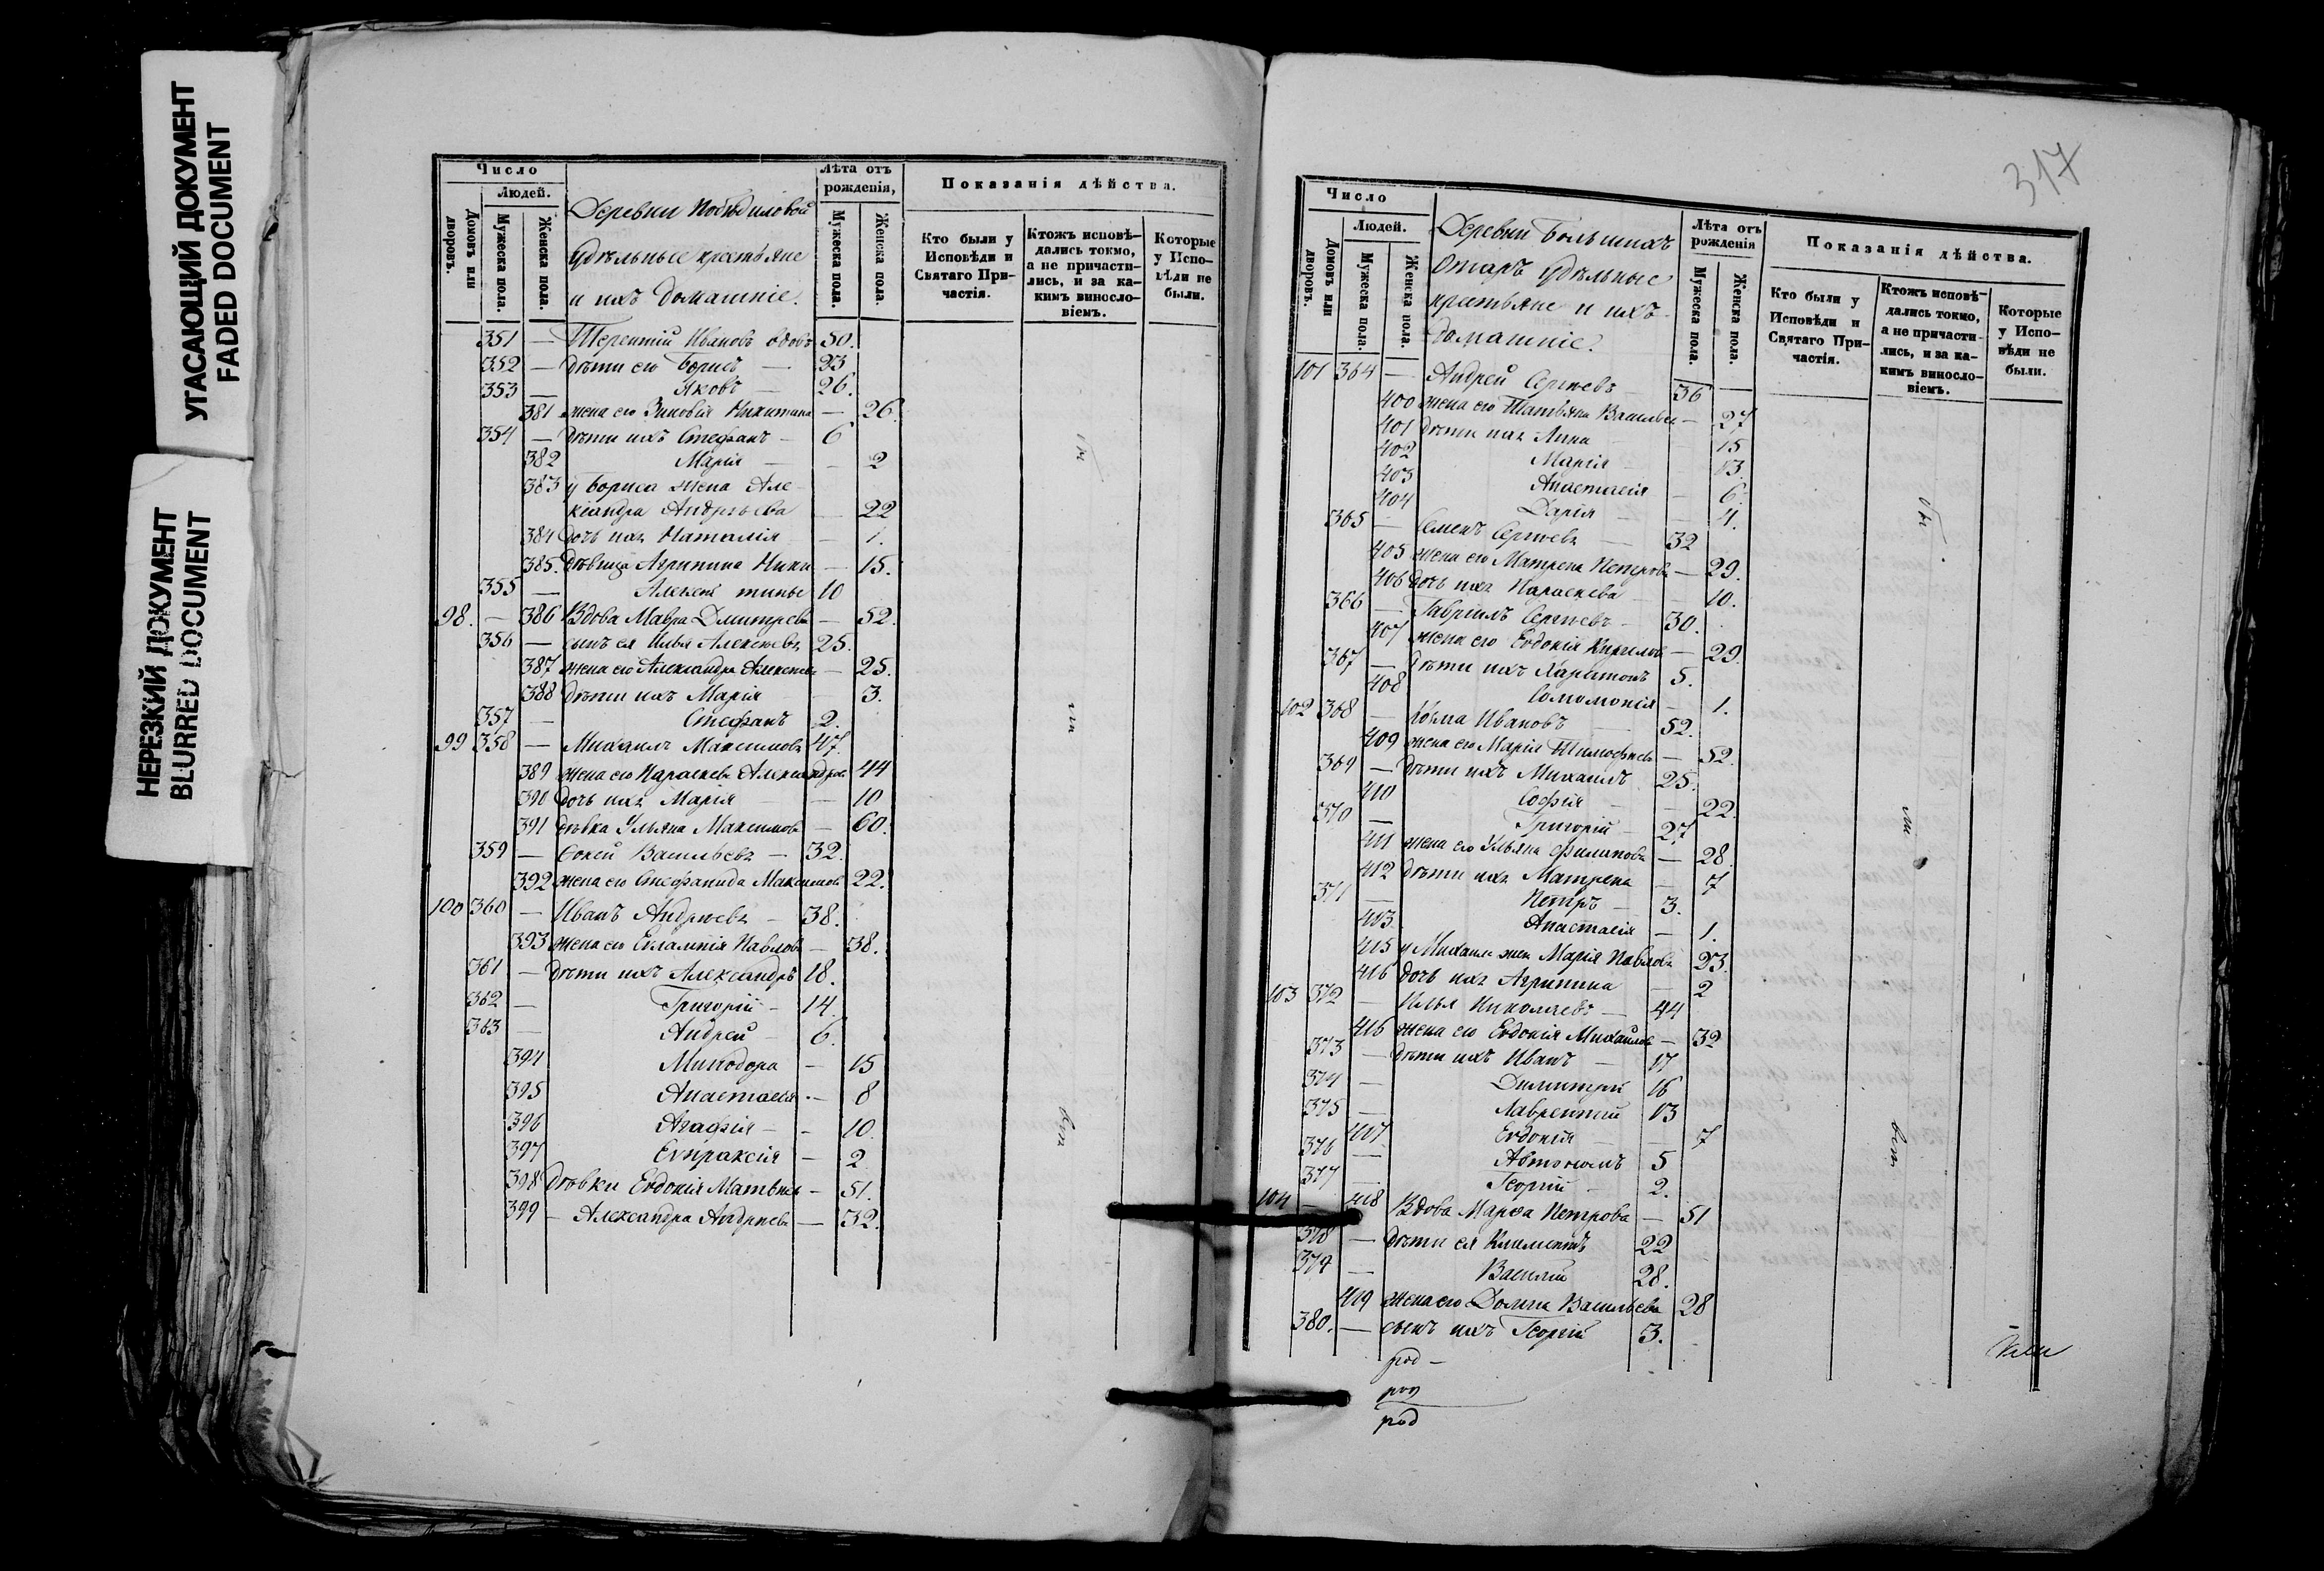 УГАСАЮЩИЙ ДОКУМЕНТ
FADED DOCUMENT
НЕРЕЗКИЙ ДОКУМЕНТ
BLURRED DOCUMENT
Число
Людей.
Домовъ или дворовъ.
Мужеска пола.
Женска пола.
Деревни
Удѣльные крестьяне
и ихъ домашніе.
Лѣта отъ рожденія,
Мужеска пола.
Женска пола.
Показанія дѣйства.
Кто были у Исповѣди и Святаго Причастія.
Ктожъ исповѣ-
дались токмо,
а не причасти-
лись, и за ка-
кимъ винсло-
віемъ.
Которые
у Испо-
вѣди не
были.
351 — Терентій Ивановъ вдовъ 50.
352 — дѣти его Борисъ — 23
353 — Яковъ — 26.
381 жена его Зиновія Никитина — 26.
354 — дѣти ихъ Стефанъ — 6
382 Марія — 2
383 у Бориса жена Але-
ксандра Андрѣева — 22
384 дочь ихъ Наталія — 1.
385. дѣвица Агрипина Ники — 15.
355 — Алексѣй тины 10
98. — 386 Вдова Мавра Димитрева — 52.
356 — сынъ ея Илья Алексѣевъ 25.
387 жена его Александра Алексѣева — 25.
388 дѣти ихъ Марія — 3.
357 — Стефанъ 2.
99 358 — Михаилъ Максимовъ 47.
389 жена его Параскева Александрова 44
390 дочь ихъ Марія — 10
391 дѣвка Ульяна Максимова — 60.
359 — Васильевъ — 32.
392 жена его Стефанида Максимова 22.
100 360 — Иванъ Андрѣевъ — 38.
393 жена его Евлампія Павлова — 38.
361 — дѣти ихъ Александръ 18.
362 — Григорій — 14.
363 — Андрей — 6.
394 Минодора — 15
395 Анастасія — 8
396 Агафія — 10.
397 Евпраксія — 2
398 дѣвки Евдокія Матвѣева — 51.
399 — Александра Андрѣева — 32.
317
Число
Людей.
Домовъ или дворовъ.
Мужеска пола.
Женска пола.
Деревни Большихъ
Отаръ Удѣльные
крестьяне и ихъ
домашніе.
Лѣта отъ рожденія
Мужеска пола.
Женска пола.
Показанія дѣйства.
Кто были у Исповѣди и Святаго Причастія.
Ктожъ исповѣ-
дались токмо,
а не причасти-
лись, и за ка-
кимъ винсло-
віемъ.
Которые
у Испо-
вѣди не
были.
101 364 — Андрей Сергѣевъ 36 —
400 жена его Татьяна Васильева — 27
401 дѣти ихъ Анна 15
402 Марія 13.
403 Анастасія — 6.
404 Дарія — 4.
365 — Семенъ Сергѣевъ — 32
405 жена его Матрена Петрова — 29.
406 дочь ихъ Параскева — 10.
366 — Гавріилъ Сергѣевъ — 30.
407 жена его Евдокія Кирилова — 29.
367 — дѣти ихъ Харитонъ 5.
408 Соломонія — 1.
102 368 — Козма Ивановъ — 52.
409 жена его Марія Тимофѣева — 52.
369 — дѣти ихъ Михаилъ 25.
410 Софія — 22.
370 — Григорій — 27.
411 жена его Ульяна Филипова — 28.
412 дѣти ихъ Матрена — 7
371 — Петръ — 3.
413. Анастасія — 1.
415 у Михаила жена Марія Павлова 23.
416 дочь ихъ Агрипина — 2
103 372 — Илья Николаевъ — 44
416 жена его Евдокія Михайлова — 32
373 — дѣти ихъ Иванъ — 17
374 — Димитрій 16
375 — Лаврентій 13
417 Евдокія — 7
376 — Автономъ 5
377 — Георгій — 2.
104 — 418 Вдова Марѳа Петрова — 51
378 — дѣти ея Климентъ 22
379 — Василій 28.
419 жена его Домна Васильева 28
380. — сынъ ихъ Георгій 3.
род —
род